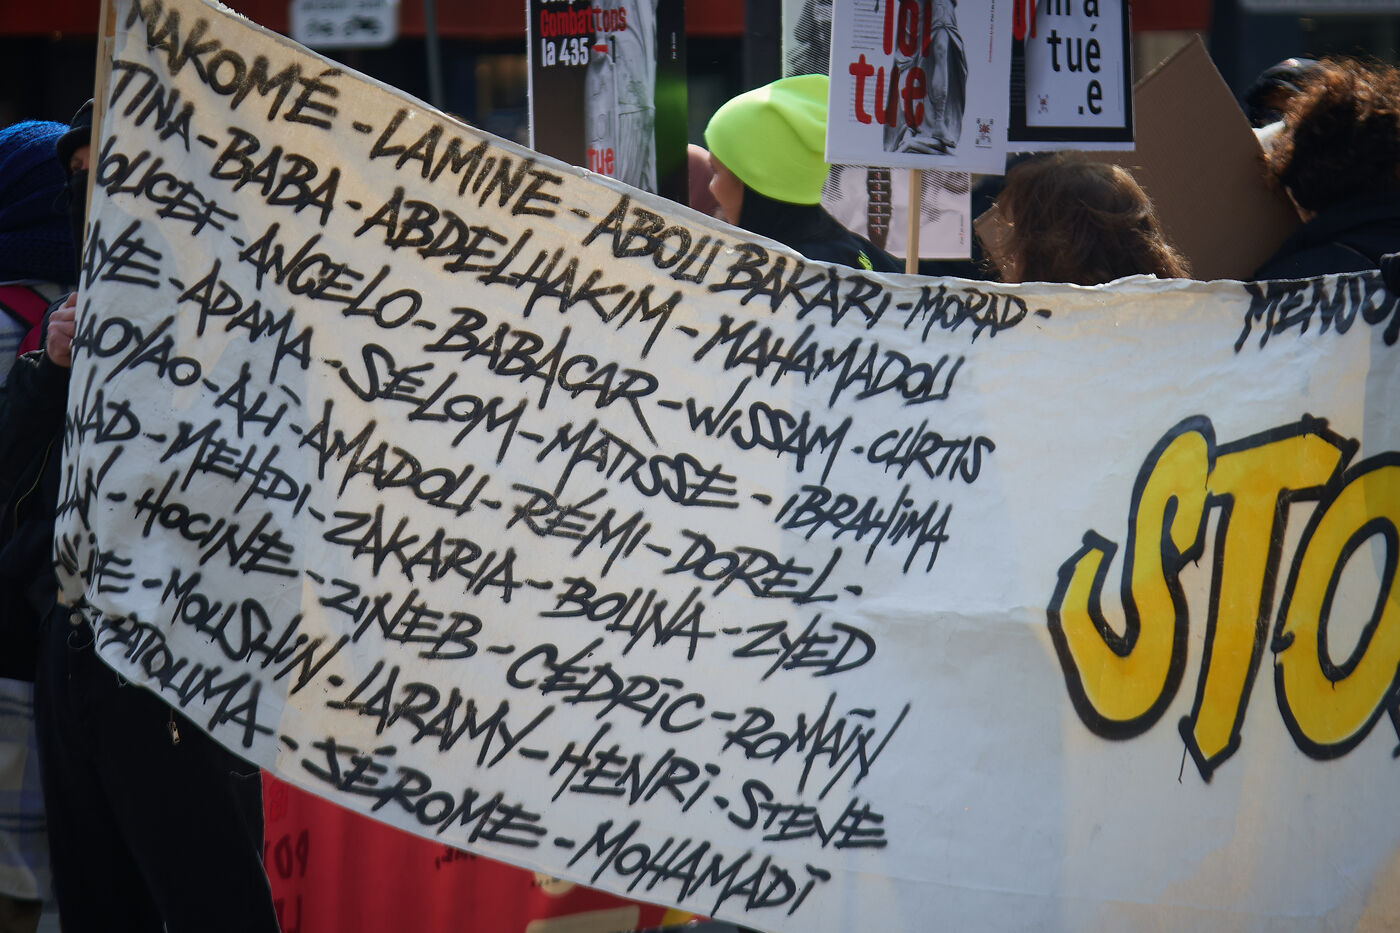 Combattons
la 435-1
tue
loi
tue
tué
.e
MAKOMÉ - LAMINE - ABOU BAKARI - MORAD -
TINA - BABA - ABDELHAKIM - MAHAMADOU
ANGELO - BABACAR - WISSAM - CURTIS
ADAMA - SÉLOM - MATISSE - IBRAHIMA
ALI - AMADOU - RÉMI - DOREL -
MEHDI - ZAKARIA - BOUNA - ZYED
HOCINE - ZINEB - CÉDRIC - ROMAIN
MOUSHIN - LARAMY - HENRI - STEVE
FATOUMA - JÉROME - MOHAMADI
STO